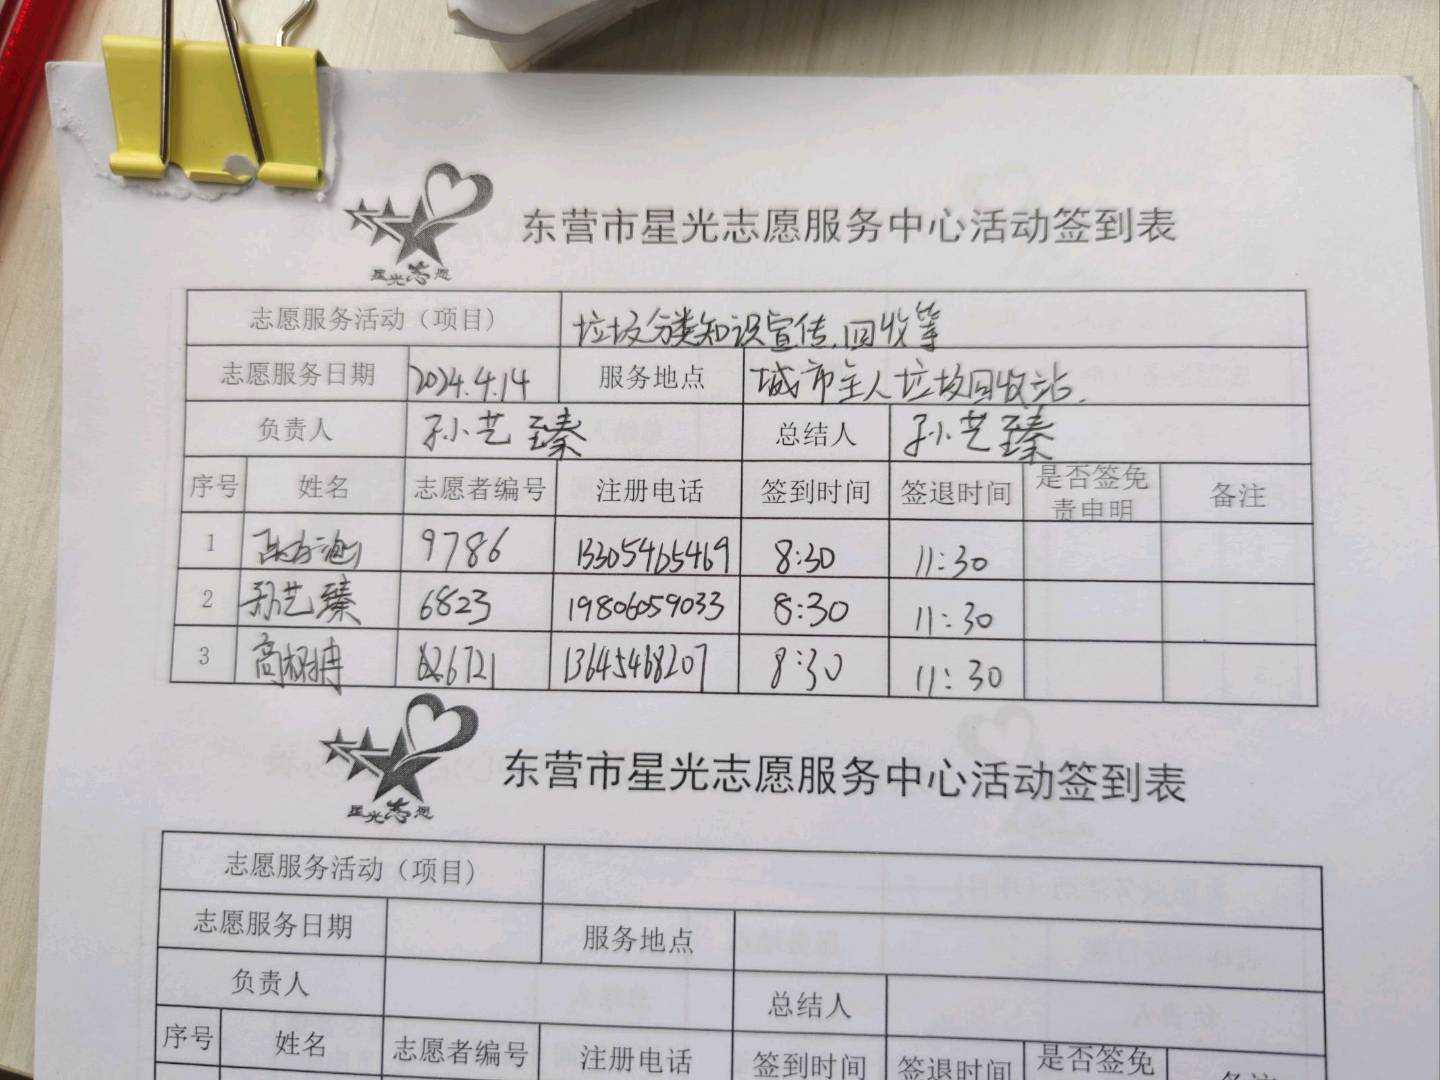 星光志愿
东营市星光志愿服务中心活动签到表
志愿服务活动（项目） 垃圾分类知识宣传.回收等
志愿服务日期 2024.4.14 服务地点 城市主人垃圾回收站.
负责人 孙艺臻 总结人 孙艺臻
序号 姓名 志愿者编号 注册电话 签到时间 签退时间 是否签免责申明 备注
1 9786 13305465469 8:30 11:30
2 孙艺臻 6823 19806059033 8:30 11:30
3 高树 13645468207 8:30 11:30
星光志愿
东营市星光志愿服务中心活动签到表
志愿服务活动（项目）
志愿服务日期 服务地点
负责人 总结人
序号 姓名 志愿者编号 注册电话 签到时间 签退时间 是否签免 备注